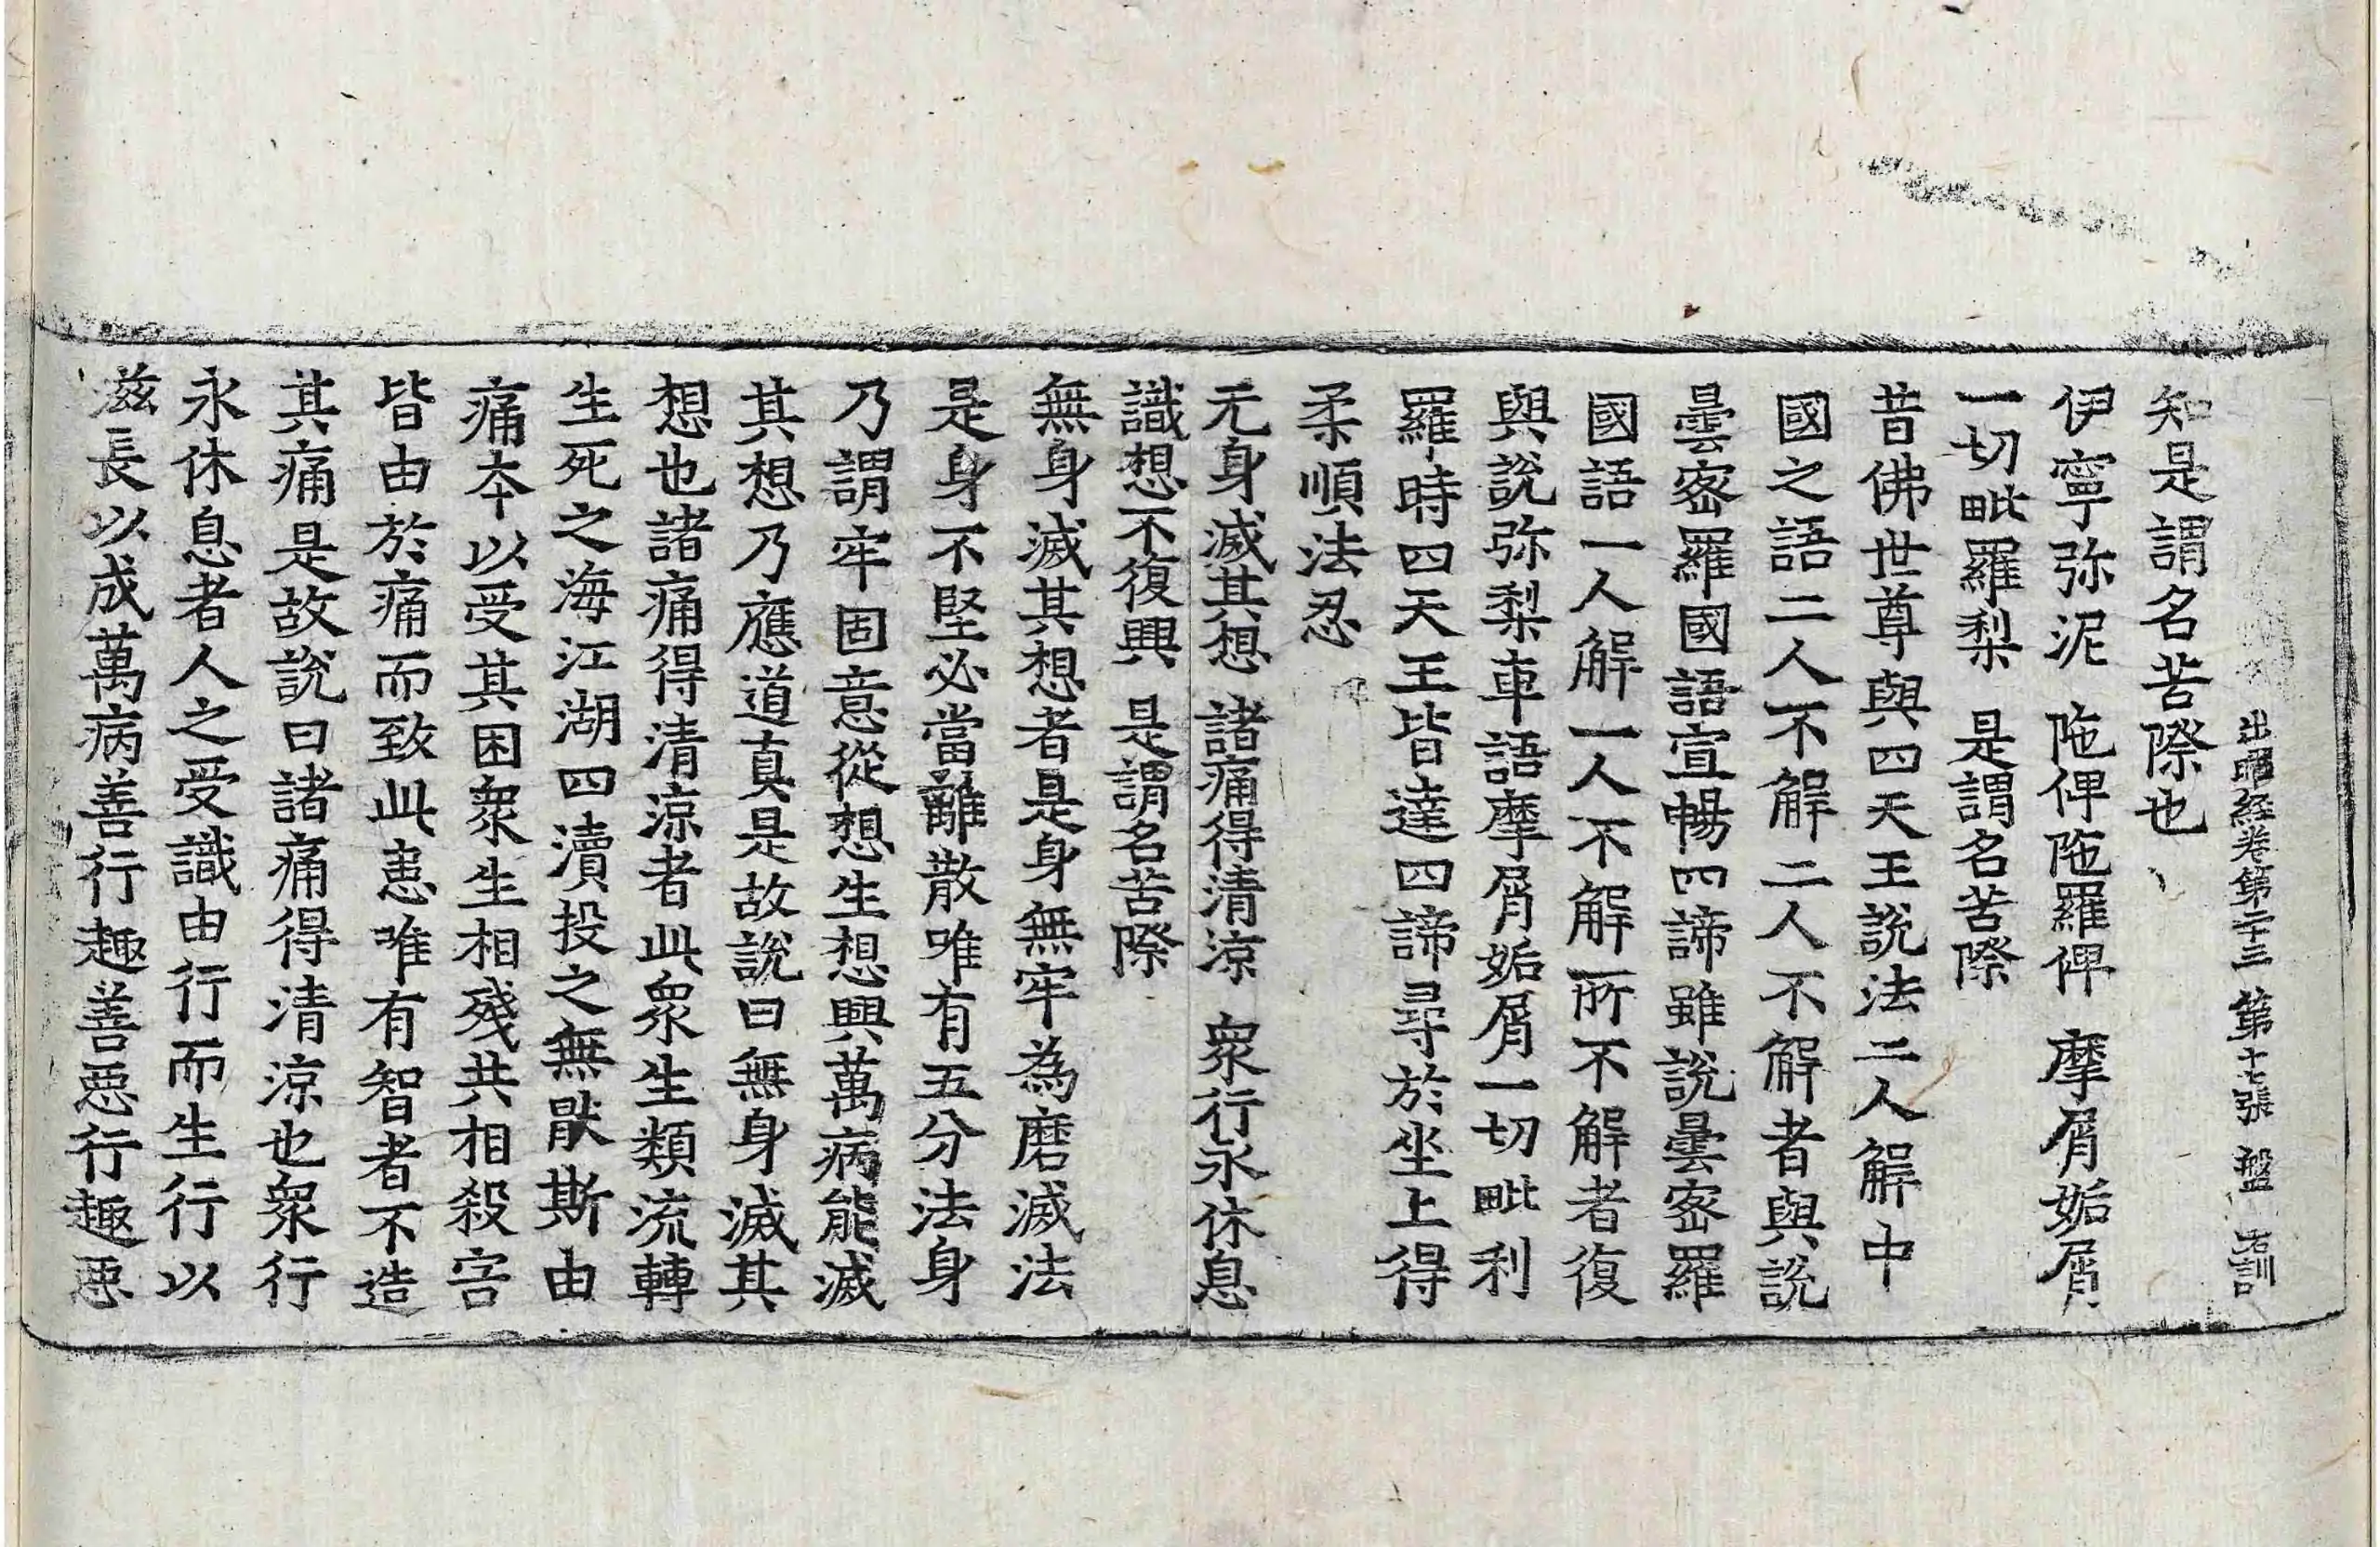 出曜経卷第二十三　第十七張　盤　石訓
知是謂名苦際也
伊寧弥泥　陁俾陁羅俾　摩屑姤屑
一切毗羅梨　是謂名苦際
昔佛世尊與四天王說法二人解中
國之語二人不解二人不解者與說
曇宻羅國語宣暢四諦雖說曇宻羅
國語一人解一人不解所不解者復
與說弥梨車語摩屑姤屑一切毗利
羅時四天王皆達四諦尋於坐上得
柔順法忍
无身滅其想　諸痛得清涼　衆行永休息
識想不復興　是謂名苦際
無身滅其想者是身無牢為磨滅法
是身不堅必當離散唯有五分法身
乃謂牢固意從想生想興萬病能滅
其想乃應道真是故說曰無身滅其
想也諸痛得清涼者此衆生類流轉
生死之海江湖四瀆投之無猒斯由
痛本以受其困衆生相殘共相殺害
皆由於痛而致此患唯有智者不造
其痛是故說曰諸痛得清涼也衆行
永休息者人之受識由行而生行以
滋長以成萬病善行趣善惡行趣惡